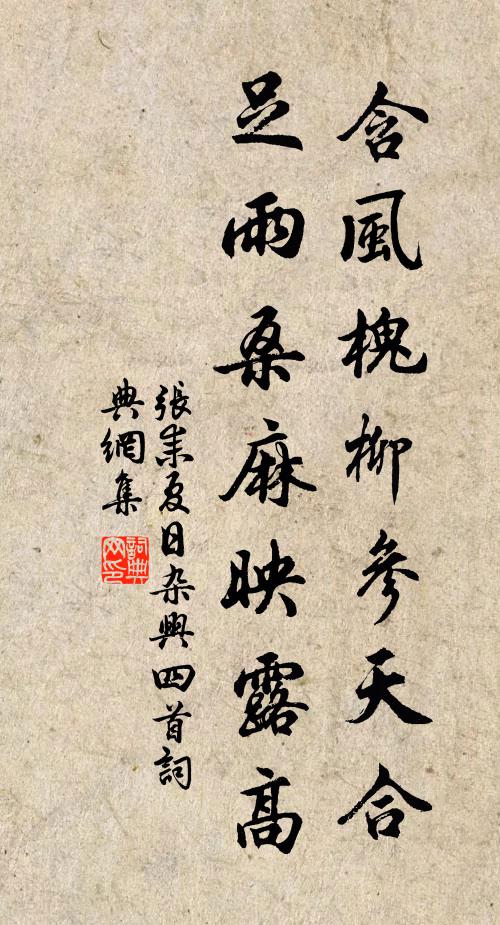 含風槐柳參天合
足雨桑麻映露高
張耒夏日杂興四首詞
典網集
詞典
网印